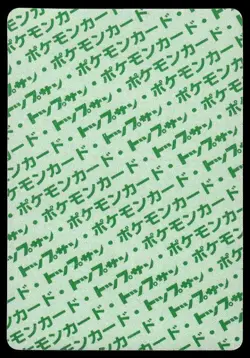 ポケモンカード
トップサン・ポケモンカード
ポケモンカード・トップサン
トップサン・ポケモンカード
ポケモンカード・トップサン
トップサン・ポケモンカード
ポケモンカード・トップサン
トップサン・ポケモンカード
ポケモンカード・トップサン
トップサン・ポケモンカード
ポケモンカード・トップサン
トップサン・ポケモンカード
ポケモンカード・トップサン
トップサン・ポケモンカード
ポケモンカード・トップサン
トップサン・ポケモンカード